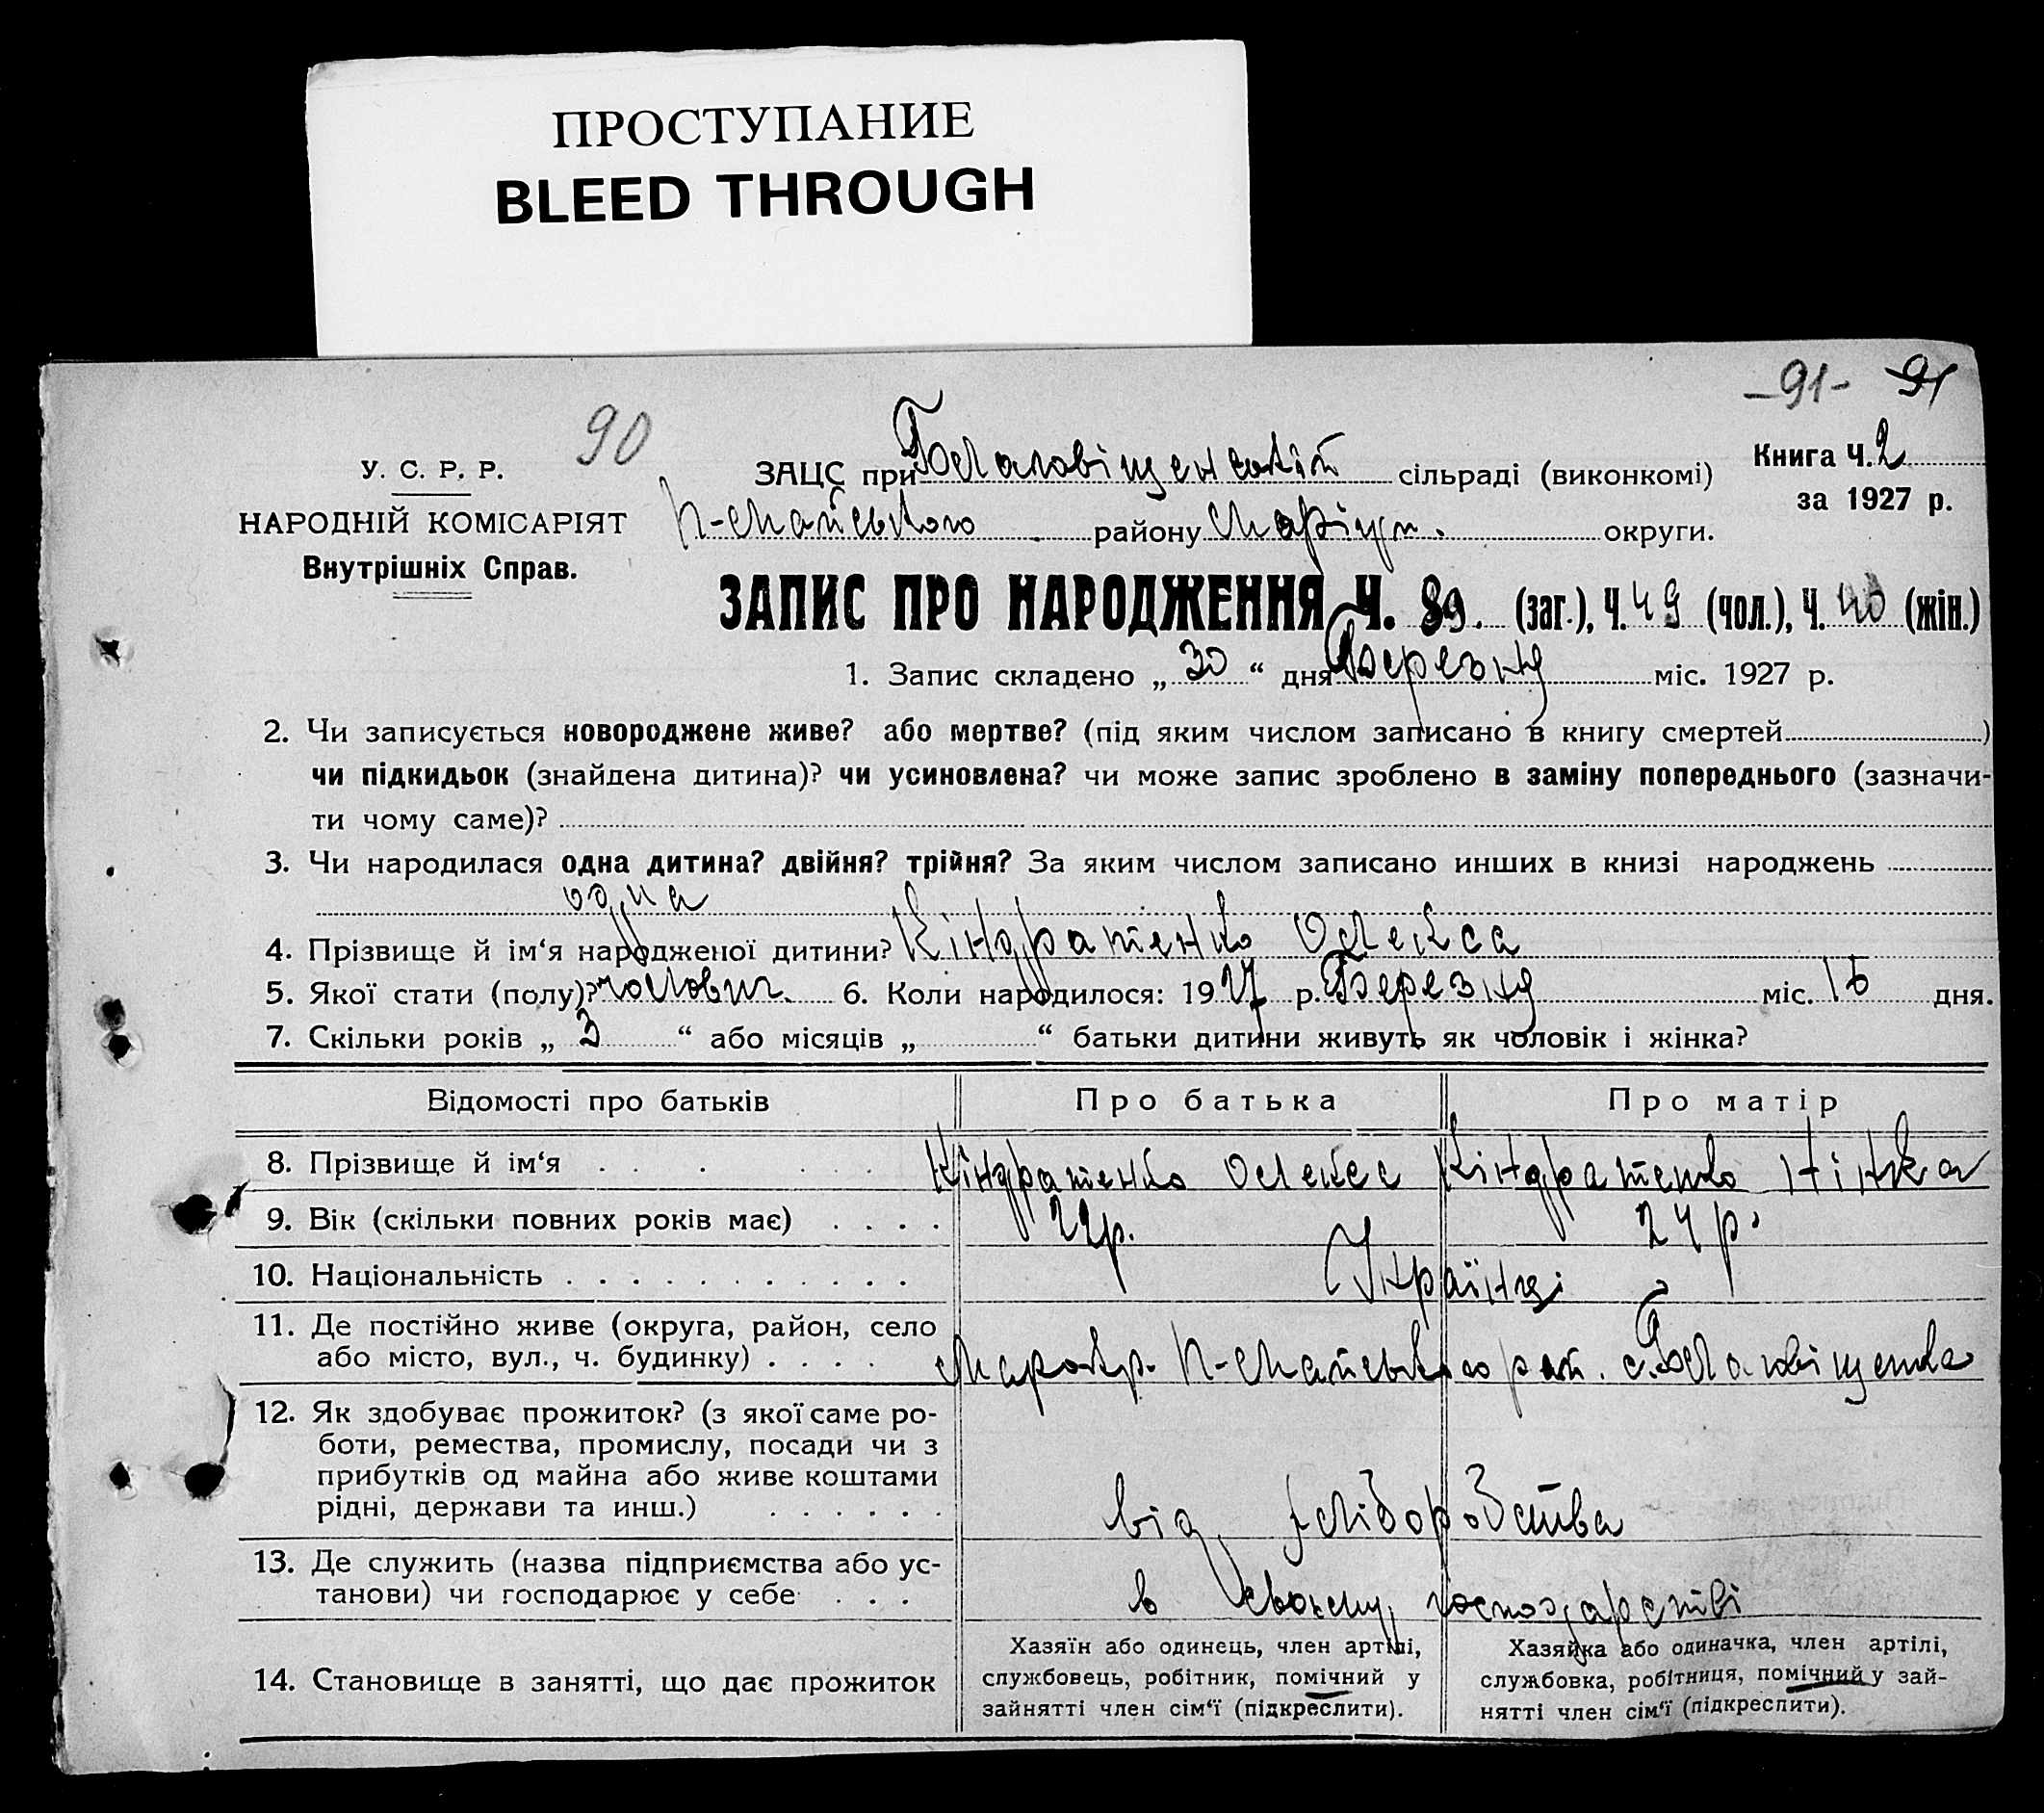 ПРОСТУПАНИЕ
BLEED THROUGH
-91- 91
90
У. С. Р. Р.
НАРОДНІЙ КОМІСАРІЯТ
Внутрішніх Справ.
ЗАЦС при Благовіщенській сільраді (виконкомі)
Книга Ч. 2
за 1927 р.
П-Майського району Маріуп. округи.
ЗАПИС ПРО НАРОДЖЕННЯ Ч. 89. (заг.), Ч. 49 (чол.), Ч. 40 (жін.)
1. Запис складено „ 30 “ дня Березня міс. 1927 р.
2. Чи записується новороджене живе? або мертве? (під яким числом записано в книгу смертей )
чи підкидьок (знайдена дитина)? чи усиновлена? чи може запис зроблено в заміну попереднього (зазначи-
ти чому саме)?
3. Чи народилася одна дитина? двійня? трійня? За яким числом записано инших в книзі народжень
одна
4. Прізвище й ім‘я народженої дитини? Кіндратенко Олекса
5. Якої стати (полу)? чоловіч. 6. Коли народилося: 1927 р. Березня міс. 16 дня.
7. Скільки років „ 3 “ або місяців „ “ батьки дитини живуть як чоловік і жінка?
Відомості про батьків Про батька Про матір
8. Прізвище й ім‘я . . . . . . Кіндратенко Олекса Кіндратенко Нінка
9. Вік (скільки повних років має) . . . . 22р. 24р.
10. Національність . . . . . . . . . . . Українці
11. Де постійно живе (округа, район, село
або місто, вул., ч. будинку) . . . . Мар окр. П-Майського рай. с. Благовіщенка
12. Як здобуває прожиток? (з якої саме ро-
боти, ремества, промислу, посади чи з
прибутків од майна або живе коштами
рідні, держави та инш.) . . . . . . від хліборобства
13. Де служить (назва підприємства або ус-
танови) чи господарює у себе . . . в своєму господарстві
14. Становище в занятті, що дає прожиток
Хазяїн або одинець, член артілі,
службовець, робітник, помічний у
зайнятті член сім‘ї (підкреслити).
Хазяйка або одиначка, член артілі,
службовка, робітниця, помічний у зай-
нятті член сім‘ї (підкреслити).